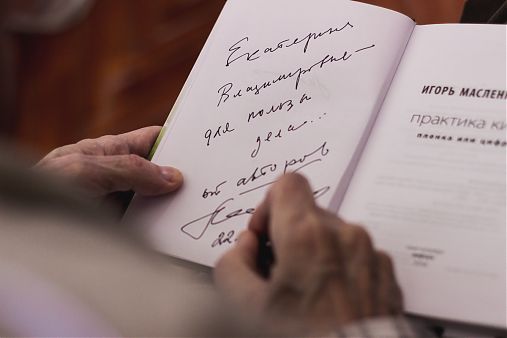 Екатерине
Владимировне
для пользы
дела...
от авторов
22.
ИГОРЬ МАСЛЕН
практика ки
пленка или циф